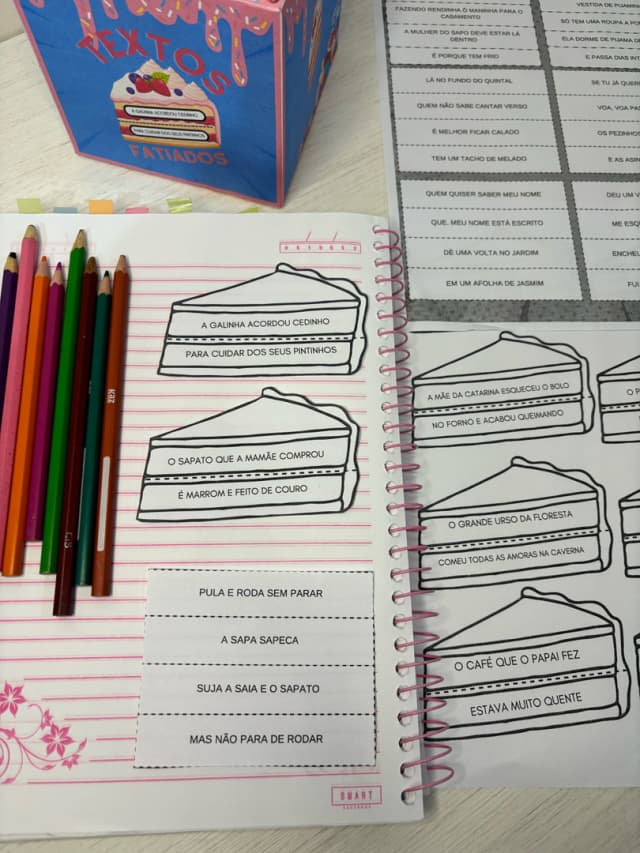 TEXTOS
A GALINHA ACORDOU CEDINHO
PARA CUIDAR DOS SEUS PINTINHOS
FATIADOS
FAZENDO RENDINHA O MANINHA PARA O
CASAMENTO
A MULHER DO SAPO DEVE ESTAR LÁ
DENTRO
É PORQUE TEM FRIO
SÓ TEM UMA ROUPA A
ELA DORME DE PIJAMA
E PASSA DIAS
LÁ NO FUNDO DO QUINTAL
QUEM NÃO SABE CANTAR VERSO
É MELHOR FICAR CALADO
TEM UM TACHO DE MELADO
SE TU JÁ
VOA, VOA
OS
E AS
QUEM QUISER SABER MEU NOME
QUE, MEU NOME ESTÁ ESCRITO
DÊ UMA VOLTA NO JARDIM
EM UM AFOLHA DE JASMIM
DEU UM
ME
FUI
A GALINHA ACORDOU CEDINHO
PARA CUIDAR DOS SEUS PINTINHOS
O SAPATO QUE A MAMÃE COMPROU
É MARROM E FEITO DE COURO
PULA E RODA SEM PARAR
A SAPA SAPECA
SUJA A SAIA E O SAPATO
MAS NÃO PARA DE RODAR
SMART
A MÃE DA CATARINA ESQUECEU O BOLO
NO FORNO E ACABOU QUEIMANDO
O GRANDE URSO DA FLORESTA
COMEU TODAS AS AMORAS NA CAVERNA
O CAFÉ QUE O PAPAI FEZ
ESTAVA MUITO QUENTE
O